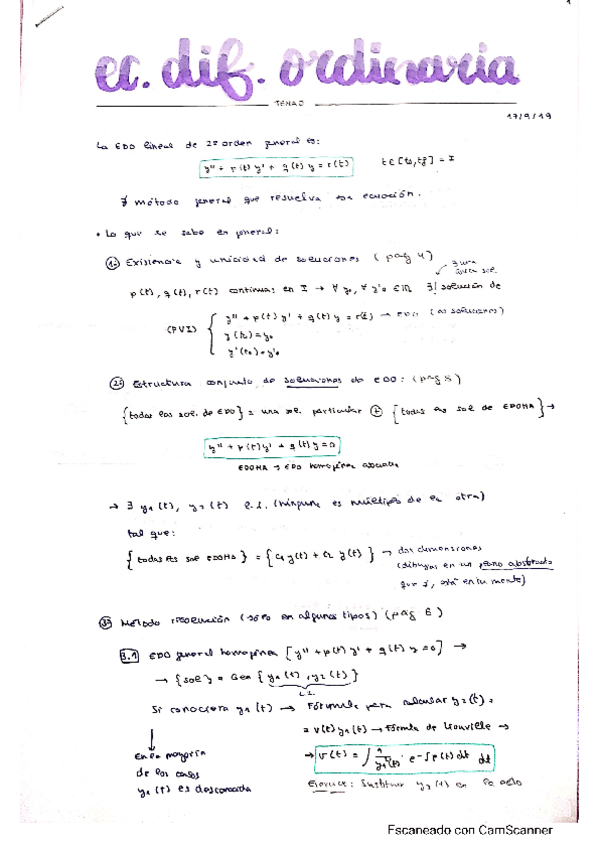 1
ec. dif. ordinaria
TEMA 0
17/9/19
La EDO lineal de 2º orden general es:
y'' + p(t) y' + q(t) y = r(t) t ∈ [t₀, tf] = I
∄ método general que resuelva esta ecuación.
• Lo que se sabe en general:
1º Existencia y unicidad de soluciones (pag 4)
∃ una única sol.
p(t), q(t), r(t) continua: en I → ∀ y₀, ∀ y'₀ ∈ ℝ ∃! solución de
(PVI) { y'' + p(t) y' + q(t) y = r(t) → EDO (∞ soluciones)
y(t₀) = y₀
y'(t₀) = y'₀
2º Estructura conjunto de soluciones de EDO: (pág 8)
{todas las sol. de EDO} = una sol. particular ⊕ {todas las sol de EDOHA} →
y'' + p(t) y' + q(t) y = 0
EDOHA → EDO homogénea asociada
→ ∃ y₁(t), y₂(t) l.i. (ninguna es múltiplo de la otra)
tal que:
{todas las sol EDOHA} = {c₁ y(t) + c₂ y(t)} → dos dimensiones
(dibujas en un plano abstracto
que sí, está en tu mente)
3º Método resolución (sólo en algunos tipos) (pág 6)
3.1 EDO general homogénea [y'' + p(t) y' + q(t) y = 0] →
→ {sol} = Gen {y₁(t), y₂(t)}
l.i.
Si conociera y₁(t) → Fórmula para calcular y₂(t) =
= v(t) y₁(t) → Fórmula de Liouville →
→ v(t) = ∫ 1/y₁²(t) · e^-∫p(t)dt dt
En la mayoría
de los casos
y₁(t) es desconocida
Ejercicio: Sustituir y₂(t) en la edo
Escaneado con CamScanner